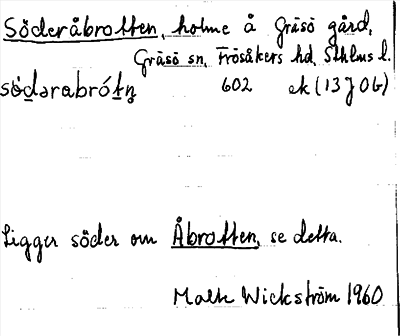 Söderåbrotten, holme å Gräsö gård,
Gräsö sn, Frösåkers hd, Sthlms l.
söd̲ərabrót̲n̥ 602 ek (13 J 0b)
Ligger söder om Åbrotten, se detta.
Malte Wickström 1960